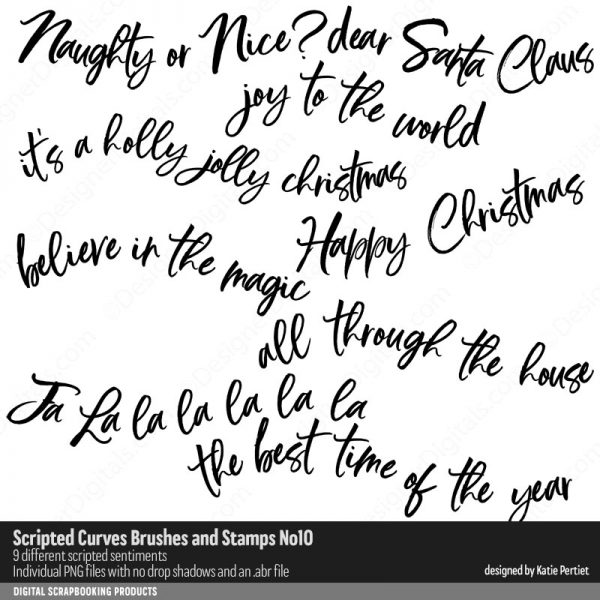 Naughty or Nice?
dear Santa Claus
joy to the world
it's a holly jolly christmas
Happy Christmas
believe in the magic
all through the house
Fa La la la la la la
the best time of the year
Scripted Curves Brushes and Stamps No10
9 different scripted sentiments
Individual PNG files with no drop shadows and an .abr file
designed by Katie Pertiet
DIGITAL SCRAPBOOKING PRODUCTS